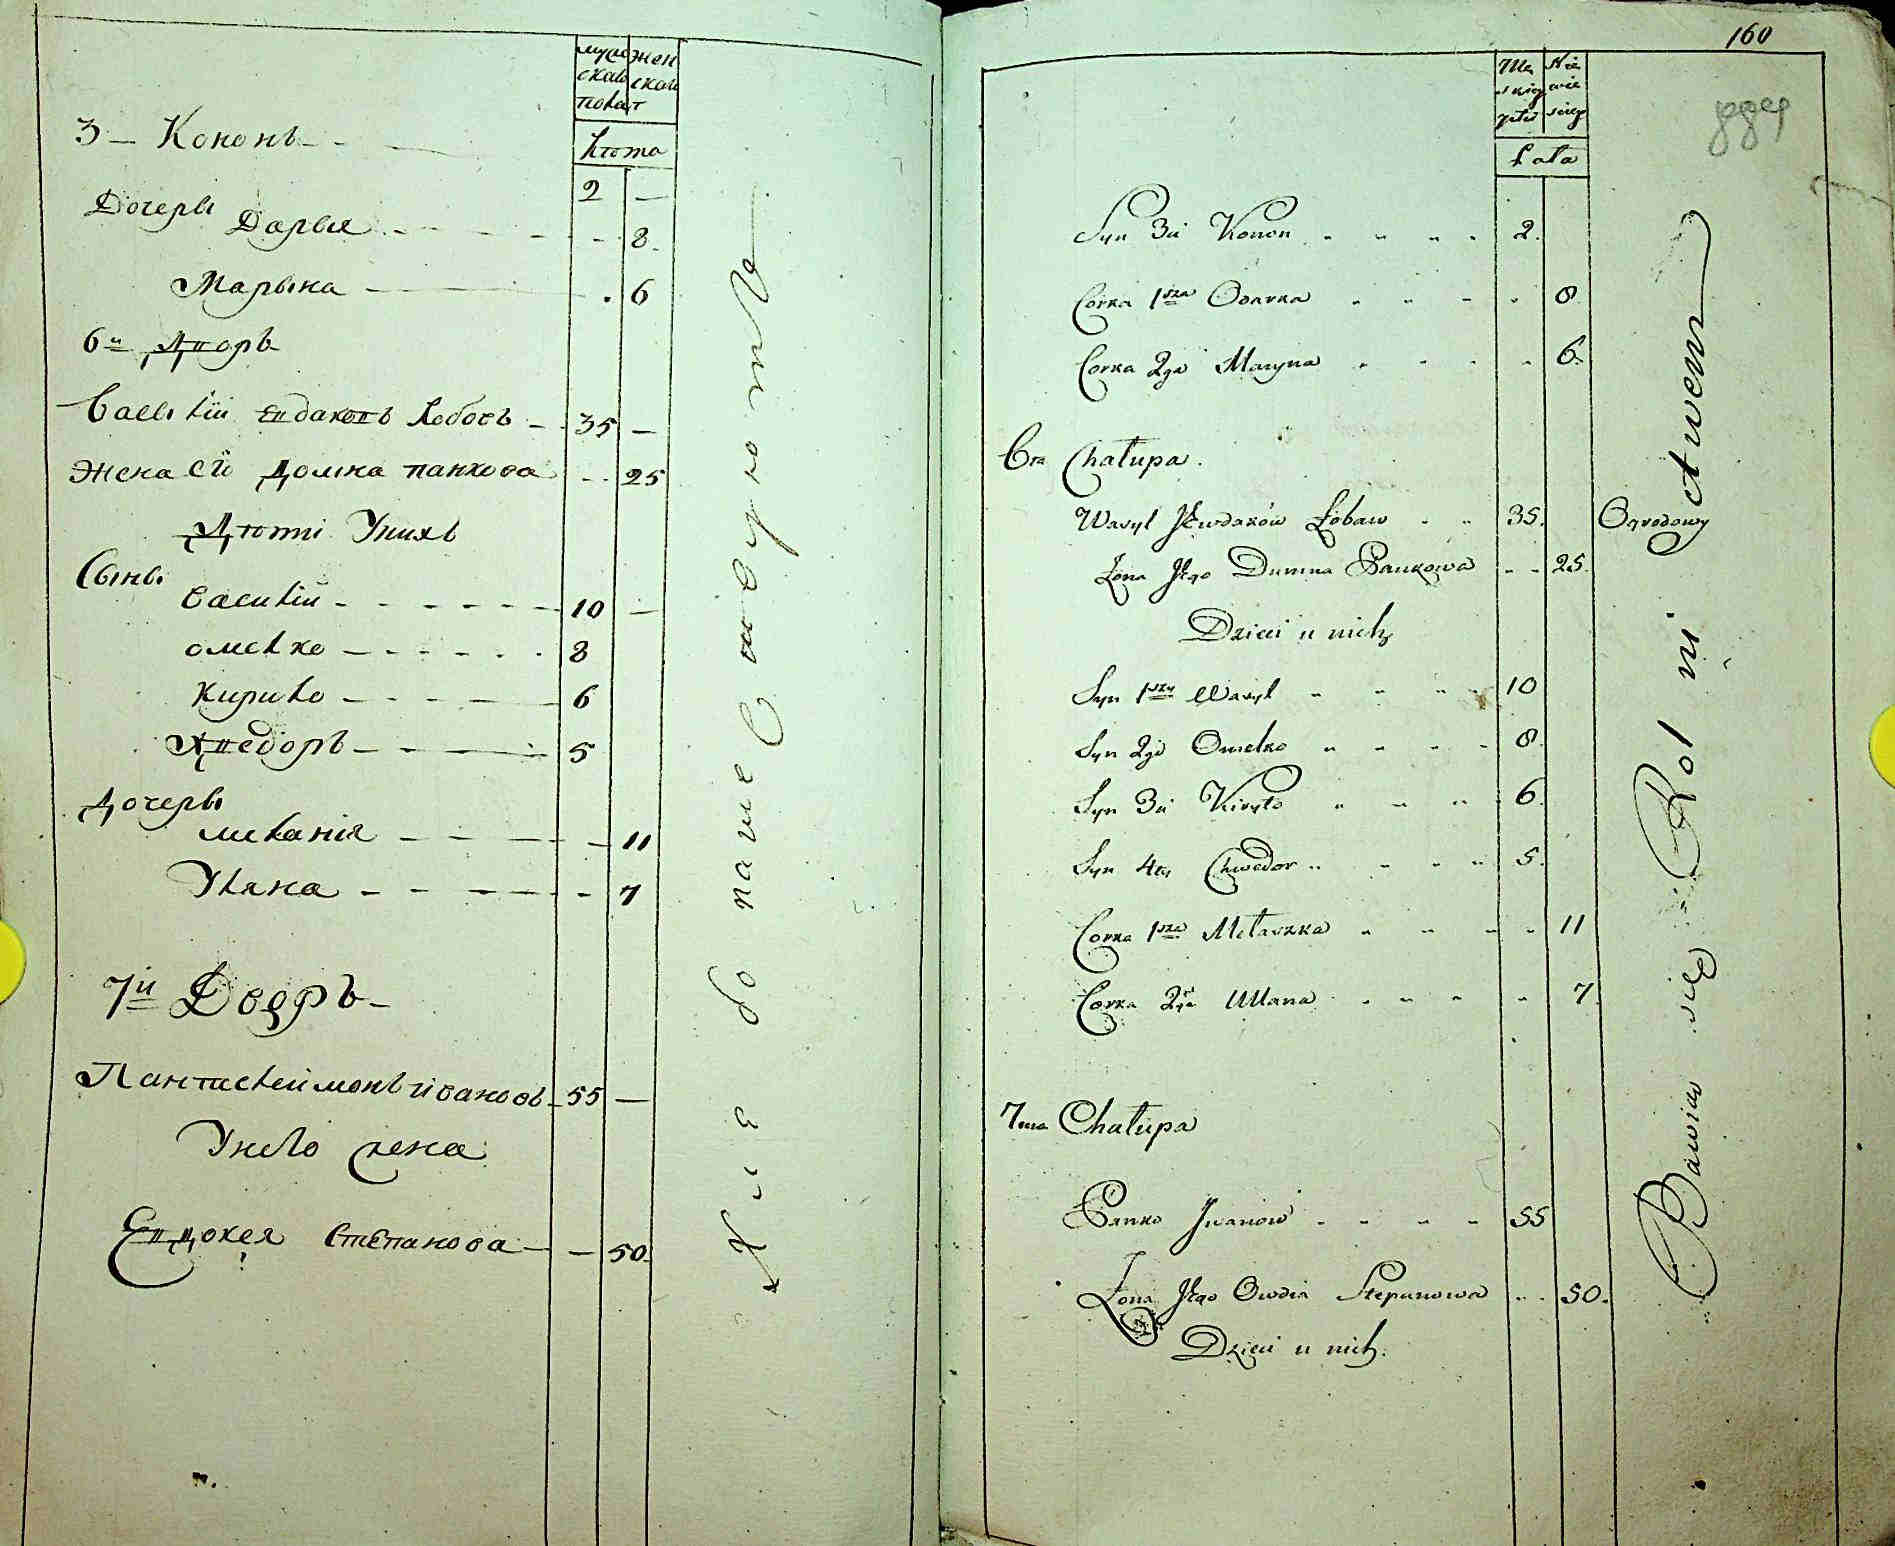 мужскаго женскаго
пола
Лѣта
3 – Кононъ 2 –
Дочеры
Дарья 8
Марына 6
6й Дворъ
Василій Евдаковъ Лобовъ 35 –
Жена Ей Домна панкова 25
Дѣти Унихъ
Сыны
Василій 10 –
омелко 8
Кирило 6
Хведоръ 5
Дочеры
меланія 11
Уляна 7
7й Дворъ
Пантелеймонъ ивановъ 55 –
Унего жена
Евдокея Степанова – 50
160
Męskiey płci Niewieściey
Lata
Syn 3ci Konon 2.
Corka 1sza Odarka 8
Corka 2ga Maryna 6.
6ta Chałupa.
Wasyl Jewdaków Łobaw 35. Ogrodowy
Żona Jego Dumna Pankowa 25.
Dzieci u nich
Syn 1szy Wasyl 10
Syn 2gi Omelko 8.
Syn 3ci Kiryło 6.
Syn 4ty Chwedor 5.
Corka 1sza Mełaszka 11
Corka 2ga Ullana 7.
7ma Chałupa
Panko Iwanow 55
Żona Jego Owdia Stepanowa 50.
Dzieci u nich.
Bawią się Rolnictwem